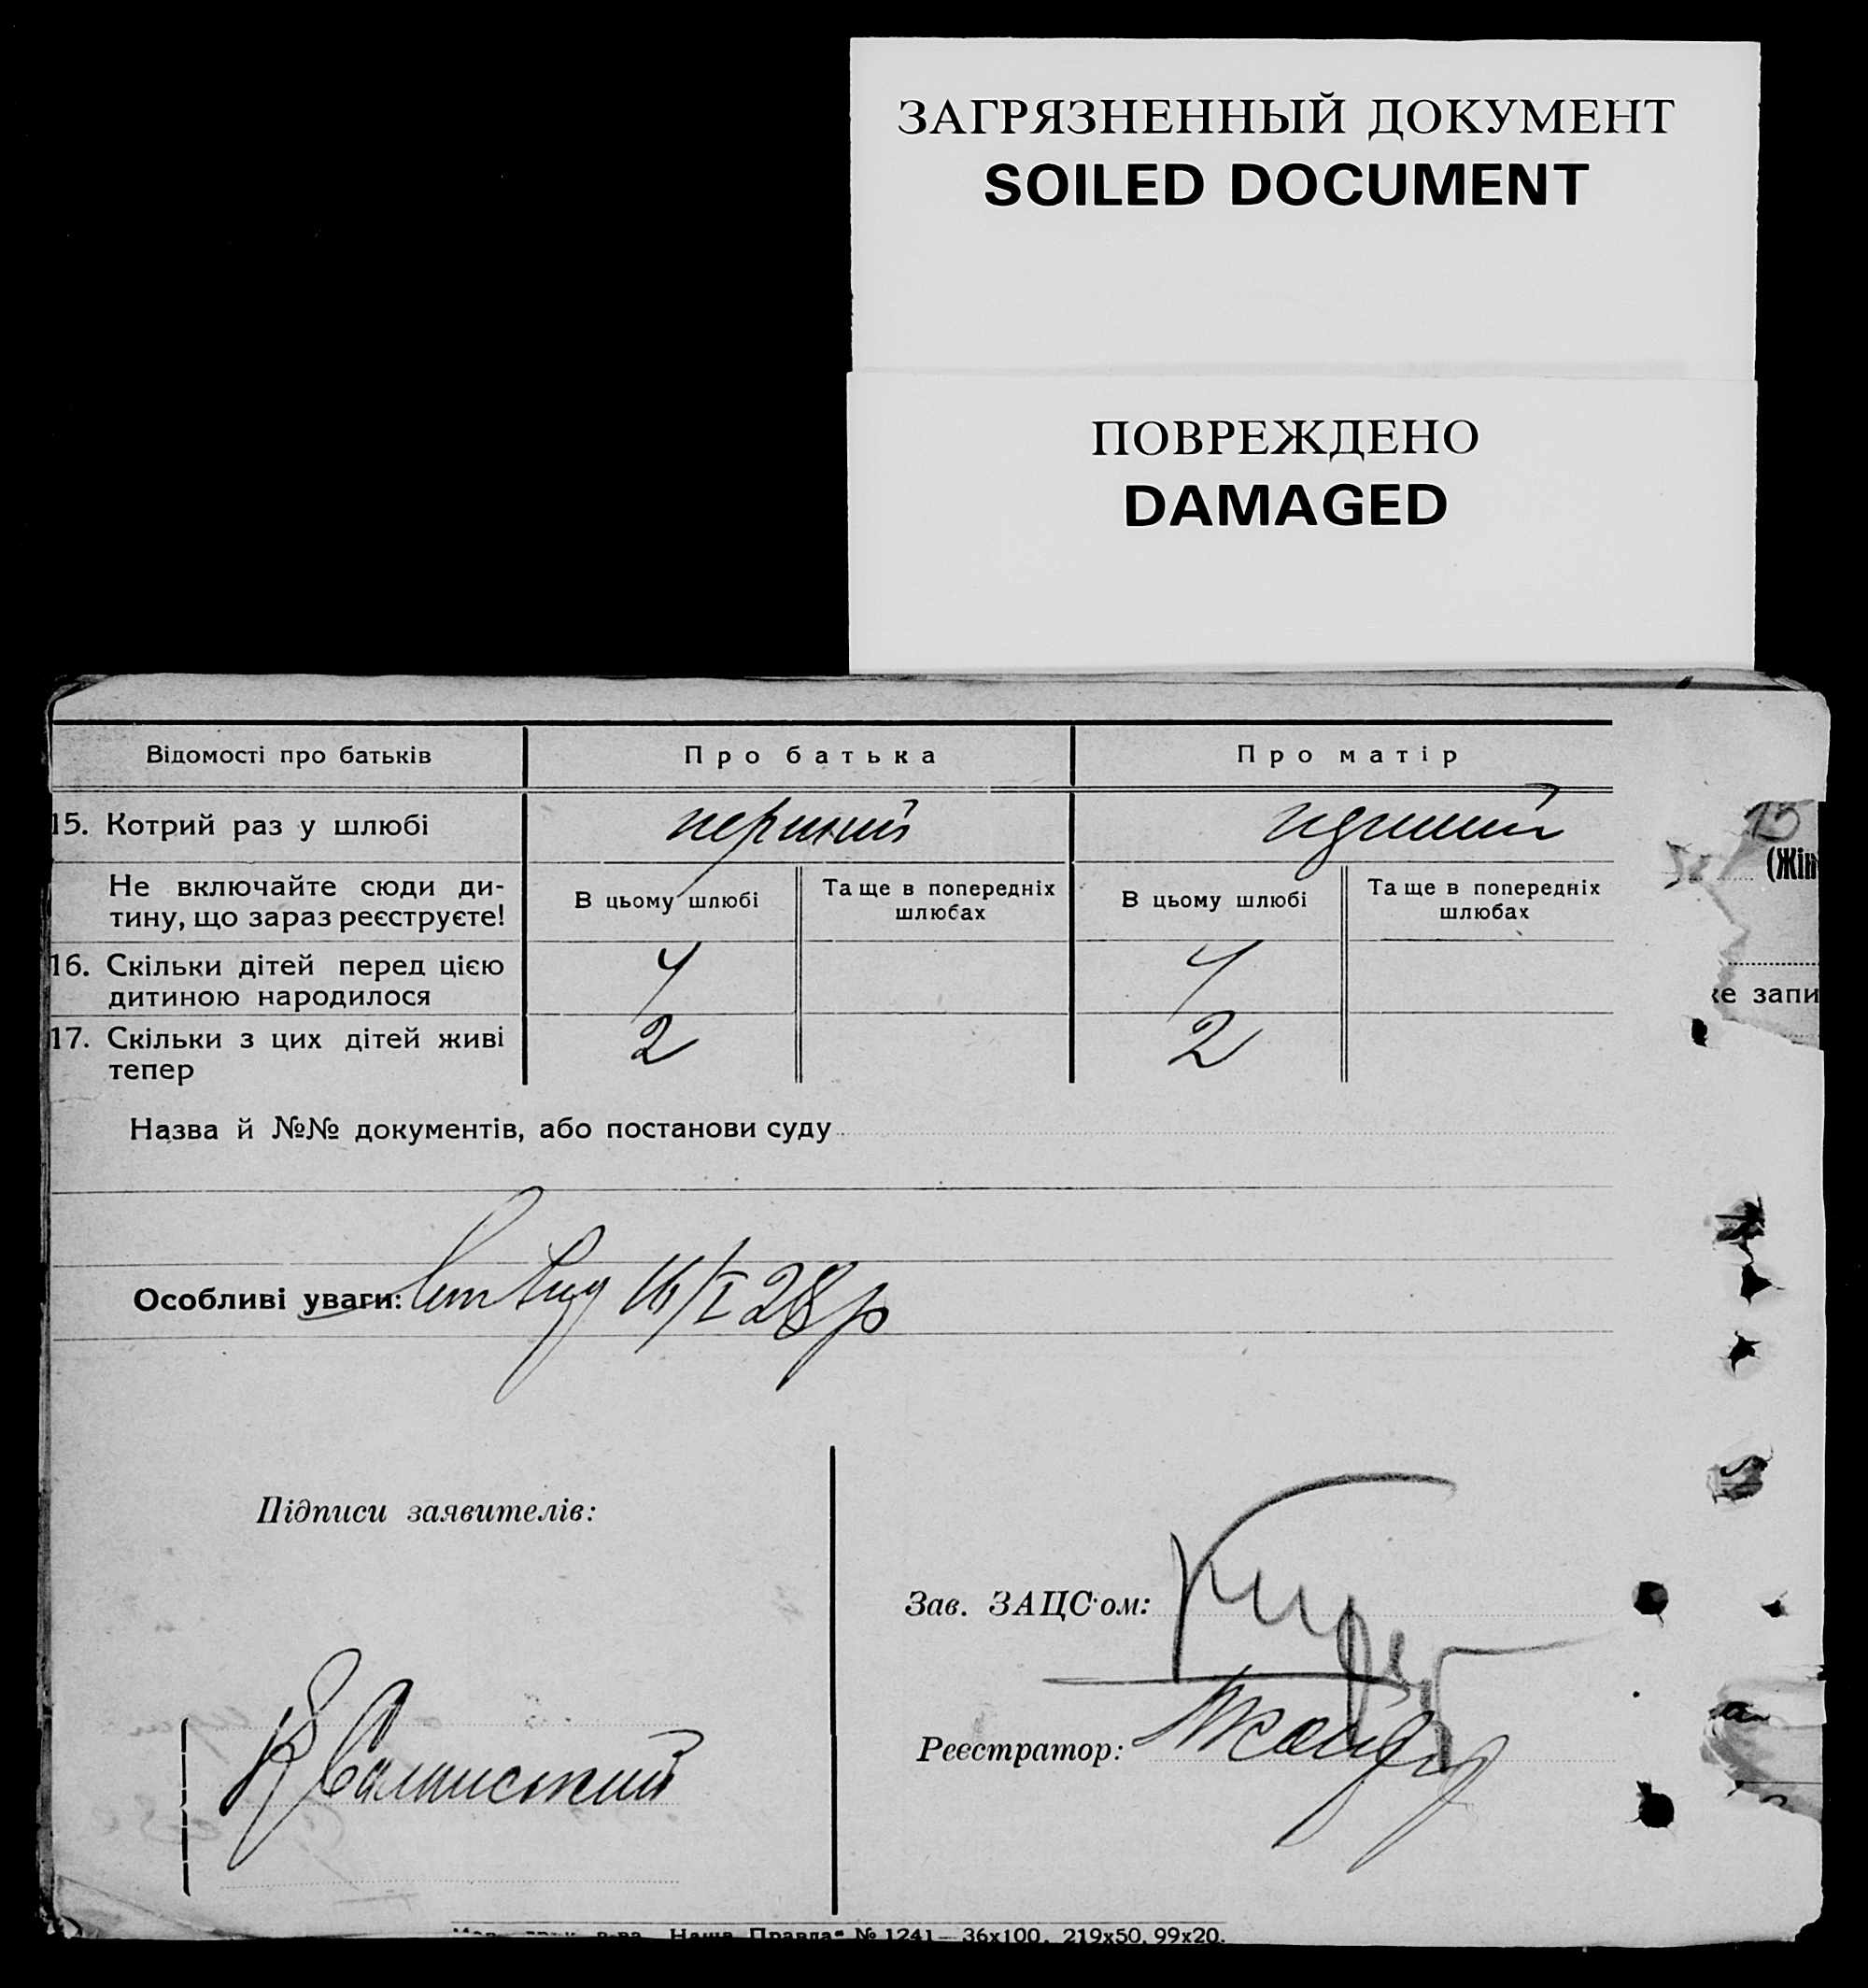 ЗАГРЯЗНЕННЫЙ ДОКУМЕНТ
SOILED DOCUMENT
ПОВРЕЖДЕНО
DAMAGED
Відомості про батьків Про батька Про матір
15. Котрий раз у шлюбі перший
Не включайте сюди ди-
тину, що зараз реєструєте!
В цьому шлюбі
Та ще в попередніх
шлюбах
В цьому шлюбі
Та ще в попередніх
шлюбах
16. Скільки дітей перед цією
дитиною народилося
4 4
17. Скільки з цих дітей живі
тепер
2 2
Назва й №№ документів, або постанови суду
Особливі уваги: 28 р
Підписи заявителів:
Зав. ЗАЦС'ом:
Реєстратор:
13
(Жін
е запи
Наша Правда" № 1241— 36х100. 219х50. 99х20.